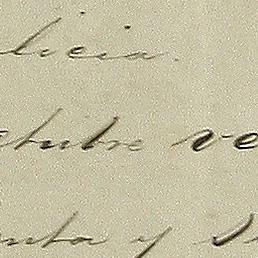 licia.
ctubre ve
enta y s